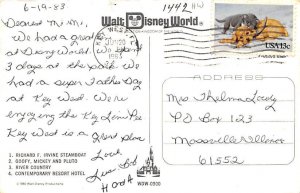 6-19-83
1442 HW
Dear Mi Mi,
We had a great
at Disney World. We
3 days at the
had a super Father Day
at Key West. We're
enjoying the Key Lime Pie
Key West is a great place
Love
Walt Disney World®
KEY WEST
JUN 20
1983
USA 13c
ADDRESS
Mrs Thelma
PO Box 123
Mossville Illinois
61552
1. RICHARD F. IRVINE STEAMBOAT
2. GOOFY, MICKEY AND PLUTO
3. RIVER COUNTRY
4. CONTEMPORARY RESORT HOTEL
© 1980 Walt Disney Productions
WDW-0300